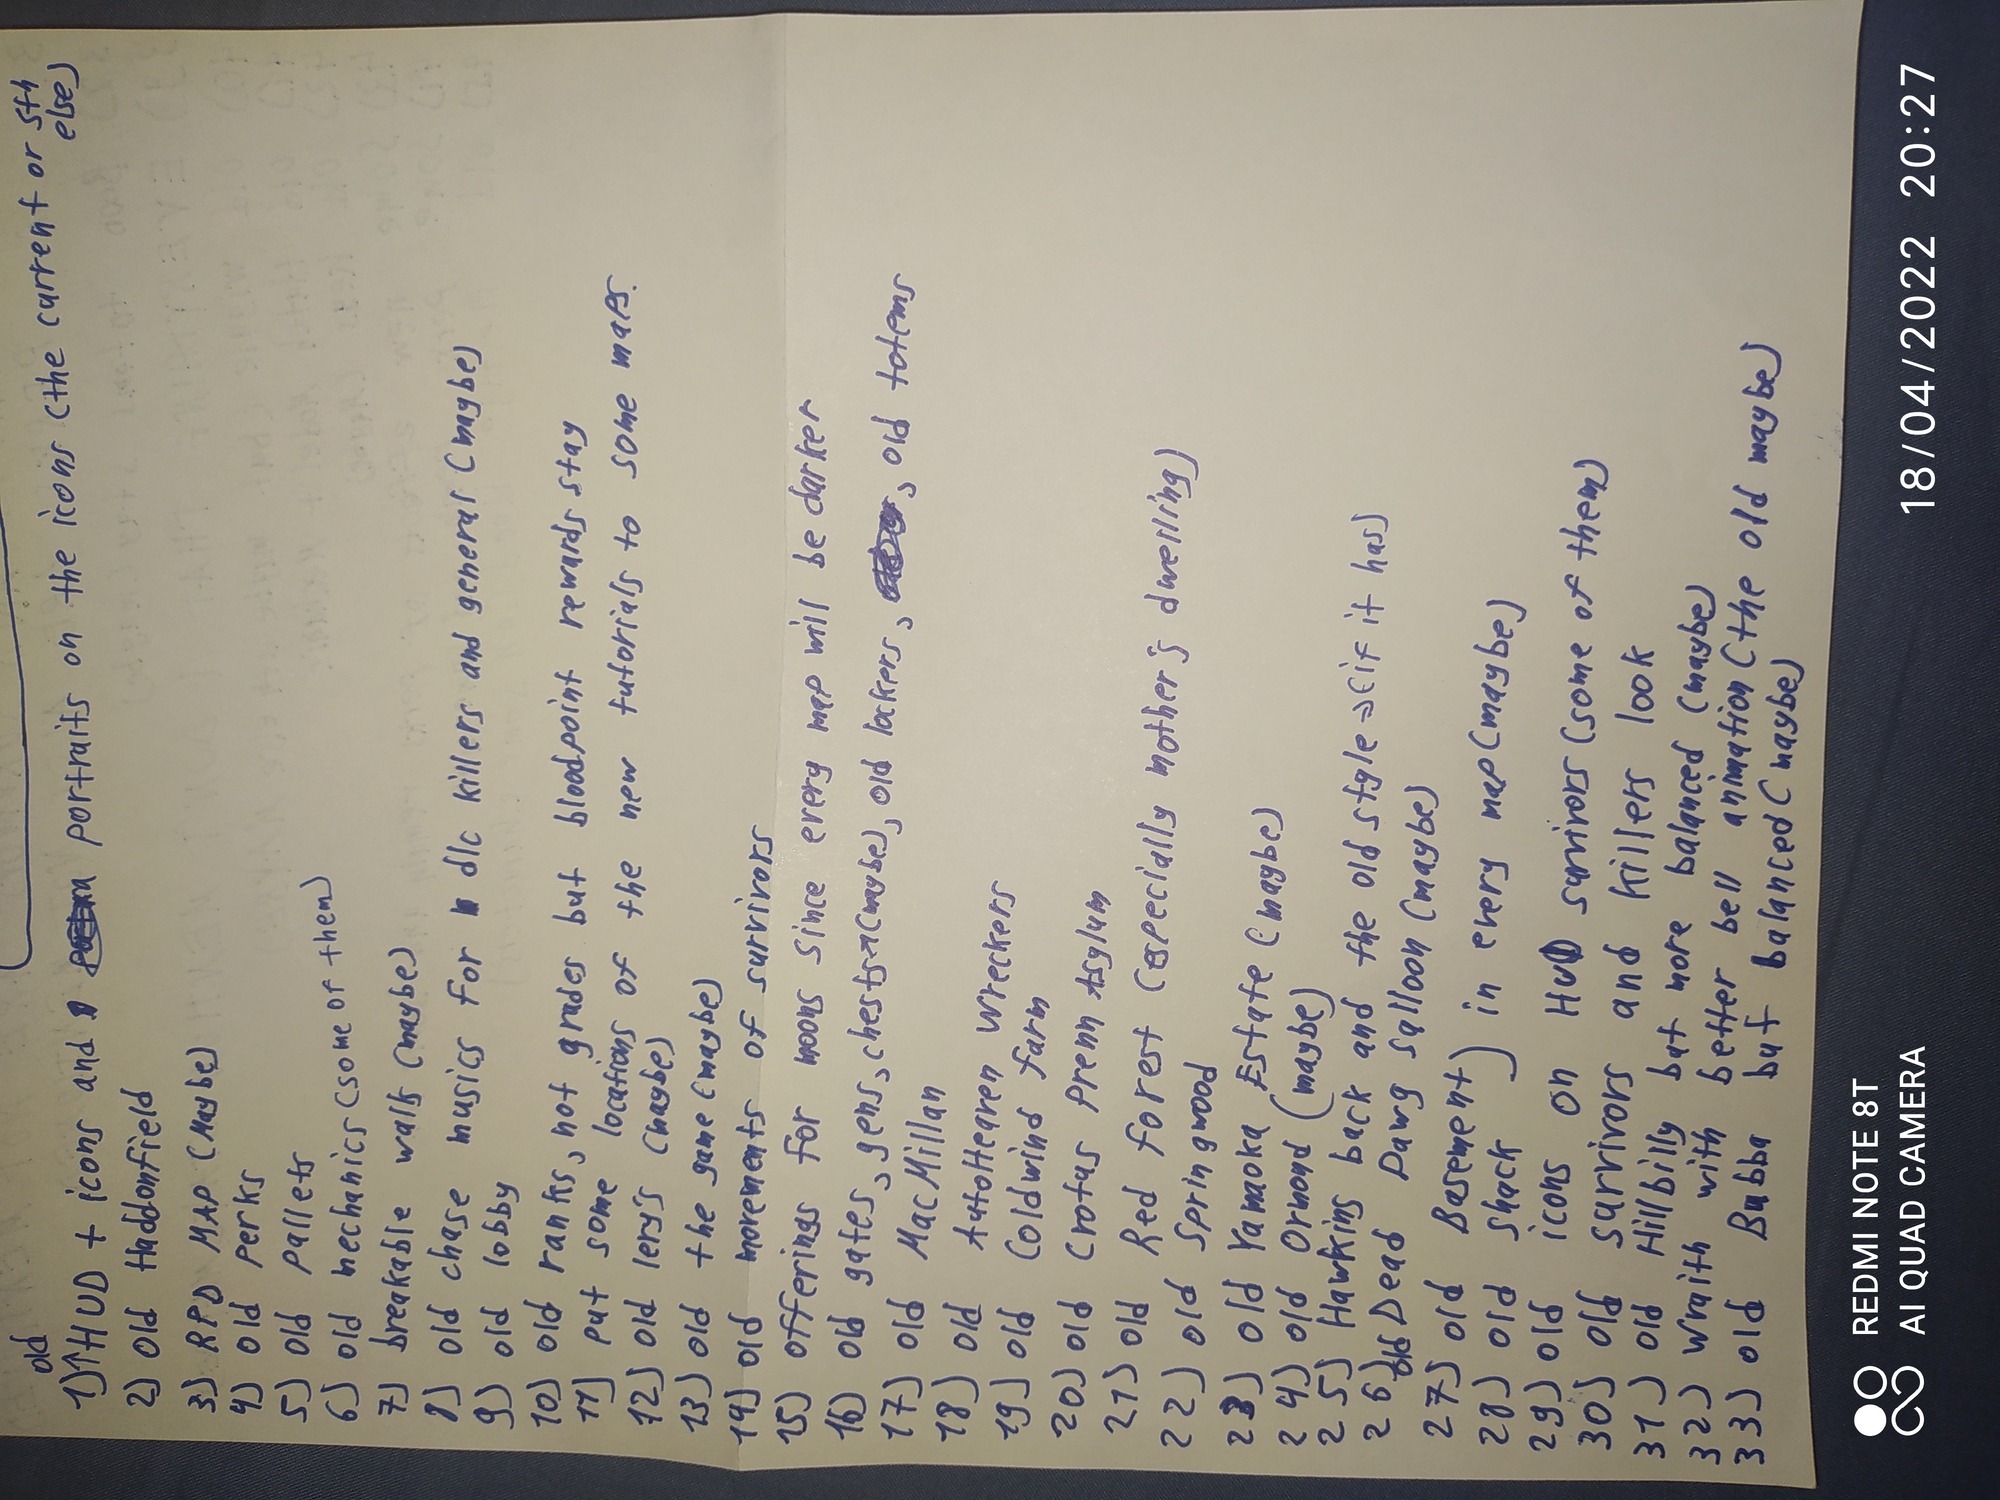 1) old HUD + icons and portraits on the icons (the current or sth else)
2) old Haddonfield
3) RPD MAP (Maybe)
4) old perks
5) old pallets
6) old mechanics (some of them)
7) breakable walls (maybe)
8) old chase musics for dlc killers and general (maybe)
9) old lobby
10) old ranks, not grades but bloodpoint rewards stay
11) put some locations of the new tutorials to some maps.
12) old lery's (maybe)
13) old the game (maybe)
14) old movements of survivors
15) offerings for moons since every map will be darker
16) old gates, gens, chests→(maybe), old lockers, , old totems
17) old MacMillan
18) old AutoHeaven Wreckers
19) old Coldwind farm
20) old Crotus Prenn Asylum
21) old Red forest (especially mother's dwelling)
22) old Springwood
23) old Yamaoka Estate (maybe)
24) old Ormond (maybe)
25) Hawkins back and the old style →(if it has)
26) old Dead Dawg salloon (maybe)
27) old Basement )
28) old shack ) in every map (maybe)
29) old icons on HUD survivors (some of them)
30) old survivors and killers look
31) old Hillbilly but more balanced (maybe)
32) Wraith with better bell animation (the old maybe)
33) old Bubba but balanced (maybe)
REDMI NOTE 8T
AI QUAD CAMERA
18/04/2022 20:27